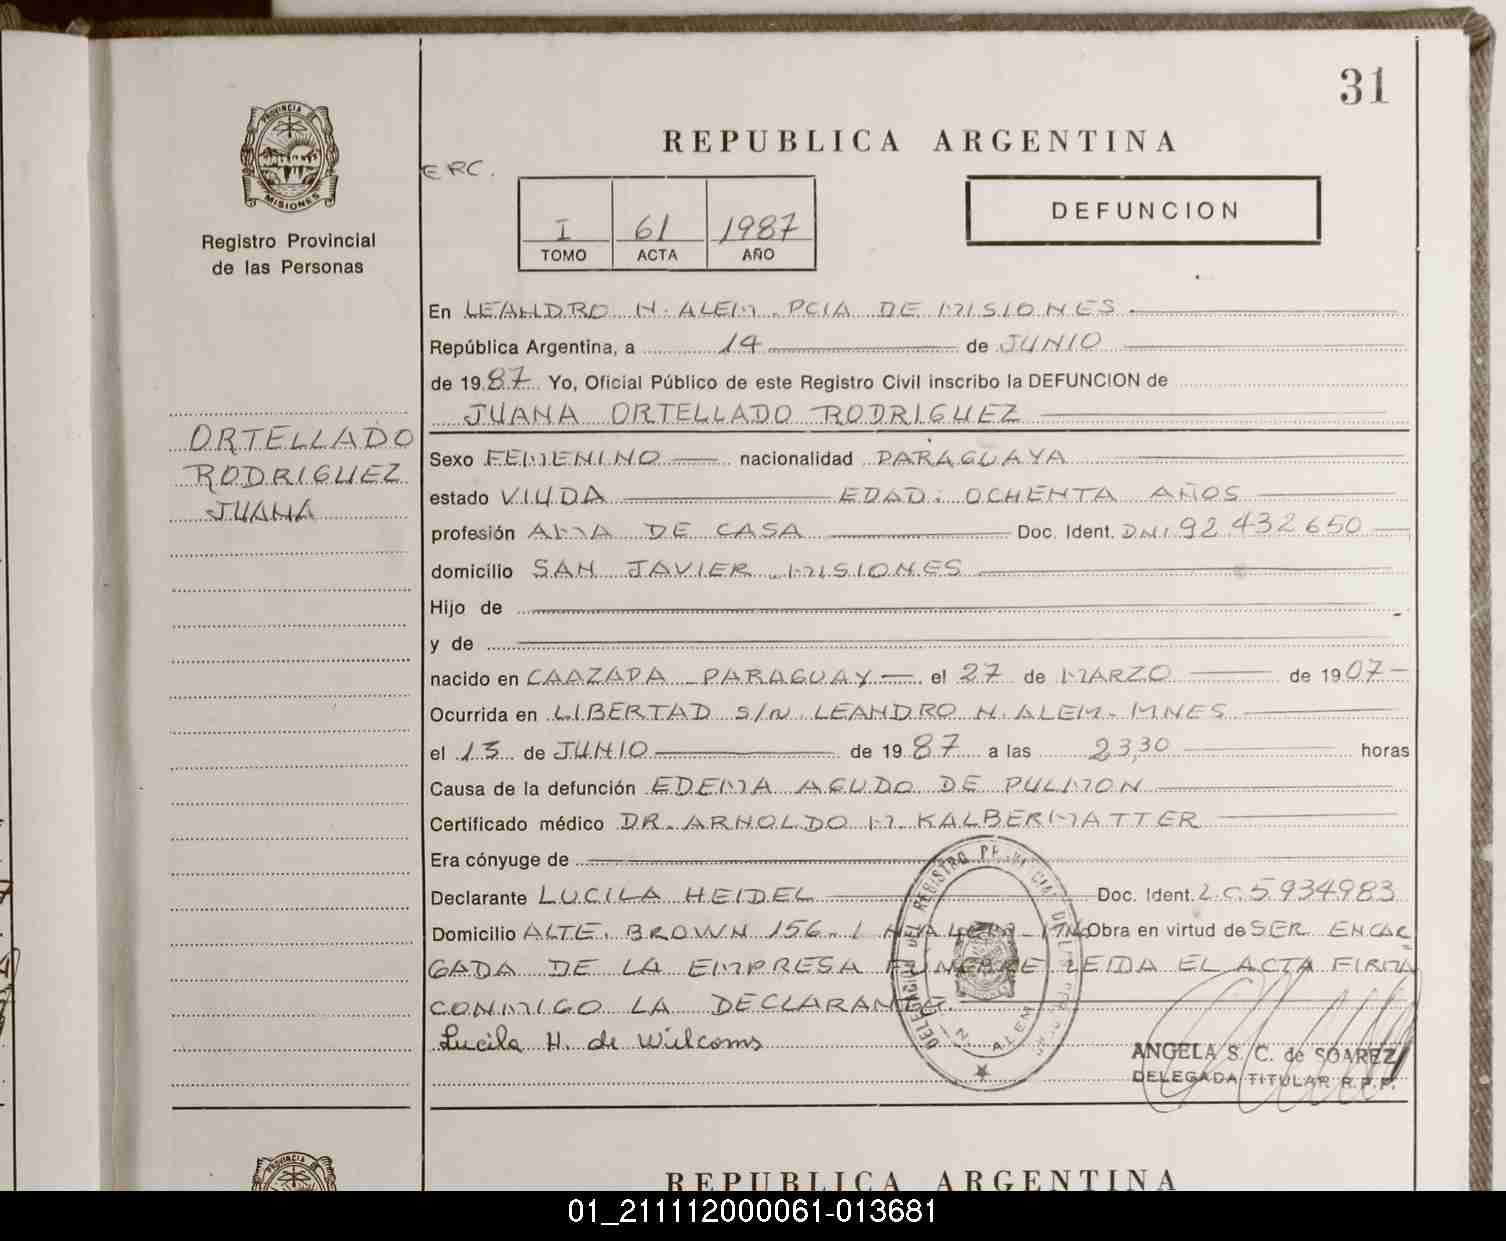 31
PROVINCIA DE
MISIONES
Registro Provincial
de las Personas
ORTELLADO
RODRIGUEZ
JUANA
REPUBLICA ARGENTINA
ERC.
I 61 1987
TOMO ACTA AÑO
DEFUNCION
En LEANDRO N. ALEM. PCIA DE MISIONES
República Argentina, a 14 de JUNIO
de 1987 Yo, Oficial Público de este Registro Civil inscribo la DEFUNCION de
JUANA ORTELLADO RODRIGUEZ
Sexo FEMENINO nacionalidad PARAGUAYA
estado VIUDA EDAD: OCHENTA AÑOS
profesión AMA DE CASA Doc. Ident. DNI 92.432650
domicilio SAN JAVIER MISIONES
Hijo de
y de
nacido en CAAZAPA PARAGUAY el 27 de MARZO de 1907
Ocurrida en LIBERTAD S/N LEANDRO N. ALEM. MNES
el 13 de JUNIO de 1987 a las 23,30 horas
Causa de la defunción EDEMA AGUDO DE PULMON
Certificado médico DR. ARNOLDO M. KALBERMATTER
Era cónyuge de
Declarante LUCILA HEIDEL Doc. Ident. L.C. 5.934983
Domicilio ALTE. BROWN 156. Obra en virtud de SER ENCAR
GADA DE LA EMPRESA FUNEBRE LEIDA EL ACTA FIRMA
CONMIGO LA DECLARANTE.
Lucila H. de Wilcoms
N. ALEM
ANGELA S. C. de SOAREZ
DELEGADA TITULAR R.P.P.
PROVINCIA DE
REPUBLICA ARGENTINA
01_211112000061-013681